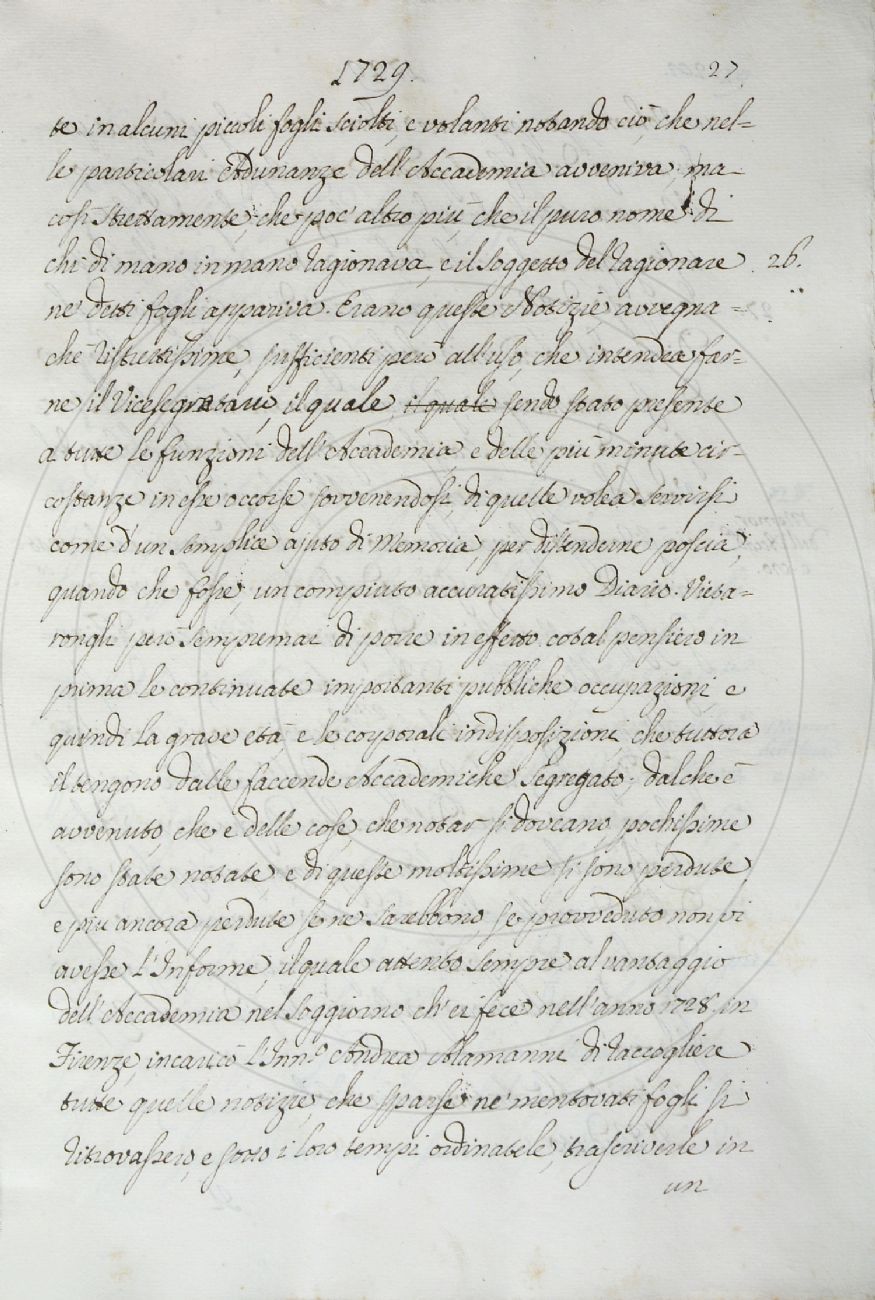 1729.
27
te in alcuni piccoli fogli sciolti, e volanti notando ciò, che nel=
le particolari Adunanze dell'Accademia avveniva, ma
così strettamente, che poc'altro più che il puro nome di
chi di mano in mano ragionava, e il soggetto del ragionare
26.
ne' detti fogli appariva. Erano queste Notizie avvegna=
chè ristrettissime, sufficienti però all'uso, che intendea far=
ne il Vicesegretario, il quale, il quale sendo stato presente
a tutte le funzioni dell'Accademia, e delle più minute cir=
costanze in esse occorse sovvenendosi, di quelle volea servirsi
come d'un semplice ajuto di Memoria, per distenderne poscia,
quando che fosse, un compiuto accuratissimo Diario. Vieta=
rongli però sempremai di porre in effetto cotal pensiero in
prima le continuate importanti pubbliche occupazioni, e
quindi la grave età, e le corporali indisposizioni, che tuttora
il tengono dalle faccende Accademiche segregato; dal che è
avvenuto, che e delle cose, che notar si doveano, pochissime
sono state notate e di queste moltissime si sono perdute,
e più ancora perdute se ne sarebbono, se provveduto non vi
avesse l'Informe, il quale attento sempre al vantaggio
dell'Accademia nel soggiorno ch'ei fece nell'anno 1728. in
Firenze, incaricò l'Inn.º Andrea Alamanni di raccogliere
tutte quelle notizie, che sparse ne' mentovati fogli si
ritrovassero, e sotto i loro tempi ordinatele, trascriverle in
un